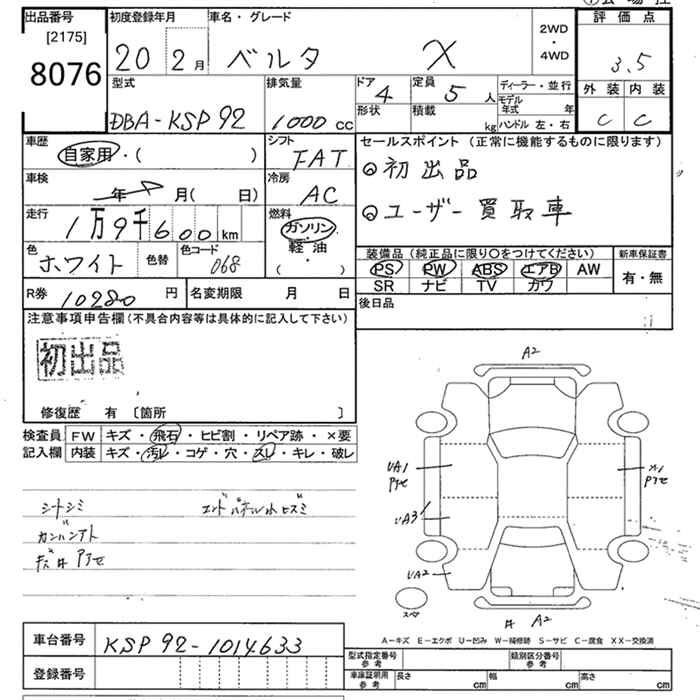 出品番号
[2175]
8076
初度登録年月
20 2月
車名・グレード
ベルタ X
2WD
・
4WD
評価点
3.5
外装 内装
C C
型式
DBA-KSP92
排気量
1000 cc
ドア 4
形状
定員 5 人
積載 kg
ディーラー・並行
モデル年式 年
ハンドル 左・右
車歴
自家用・( )
シフト
FAT
セールスポイント (正常に機能するものに限ります)
◎初出品
◎ユーザー買取車
車検
年 月( 日)
冷房
AC
走行
1万9千600km
燃料
ガソリン・
軽・油
( )
色
ホワイト
色替
色コード
068
装備品 (純正品に限り○をつけてください)
PS PW ABS エアB AW
SR ナビ TV カワ
新車保証書
有・無
R券 10280 円
名変期限 月 日
後日品
注意事項申告欄 (不具合内容等は具体的に記入して下さい)
初出品
修復歴 有 〔箇所 〕
検査員 FW キズ・飛石・ヒビ割・リペア跡・×要
記入欄 内装 キズ・汚レ・コゲ・穴・スレ・キレ・破レ
シートシミ
カンバンアト
エンドパネル小ヒズミ
A2
UA1
UA3
UA2
スペア
A2
A-キズ E-エクボ U-凹み W-補修跡 S-サビ C-腐食 XX-交換済
車台番号 KSP92-1014633
登録番号
型式指定番号 参考
類別区分番号 参考
車庫証明用 参考
長さ cm 幅 cm 高さ cm